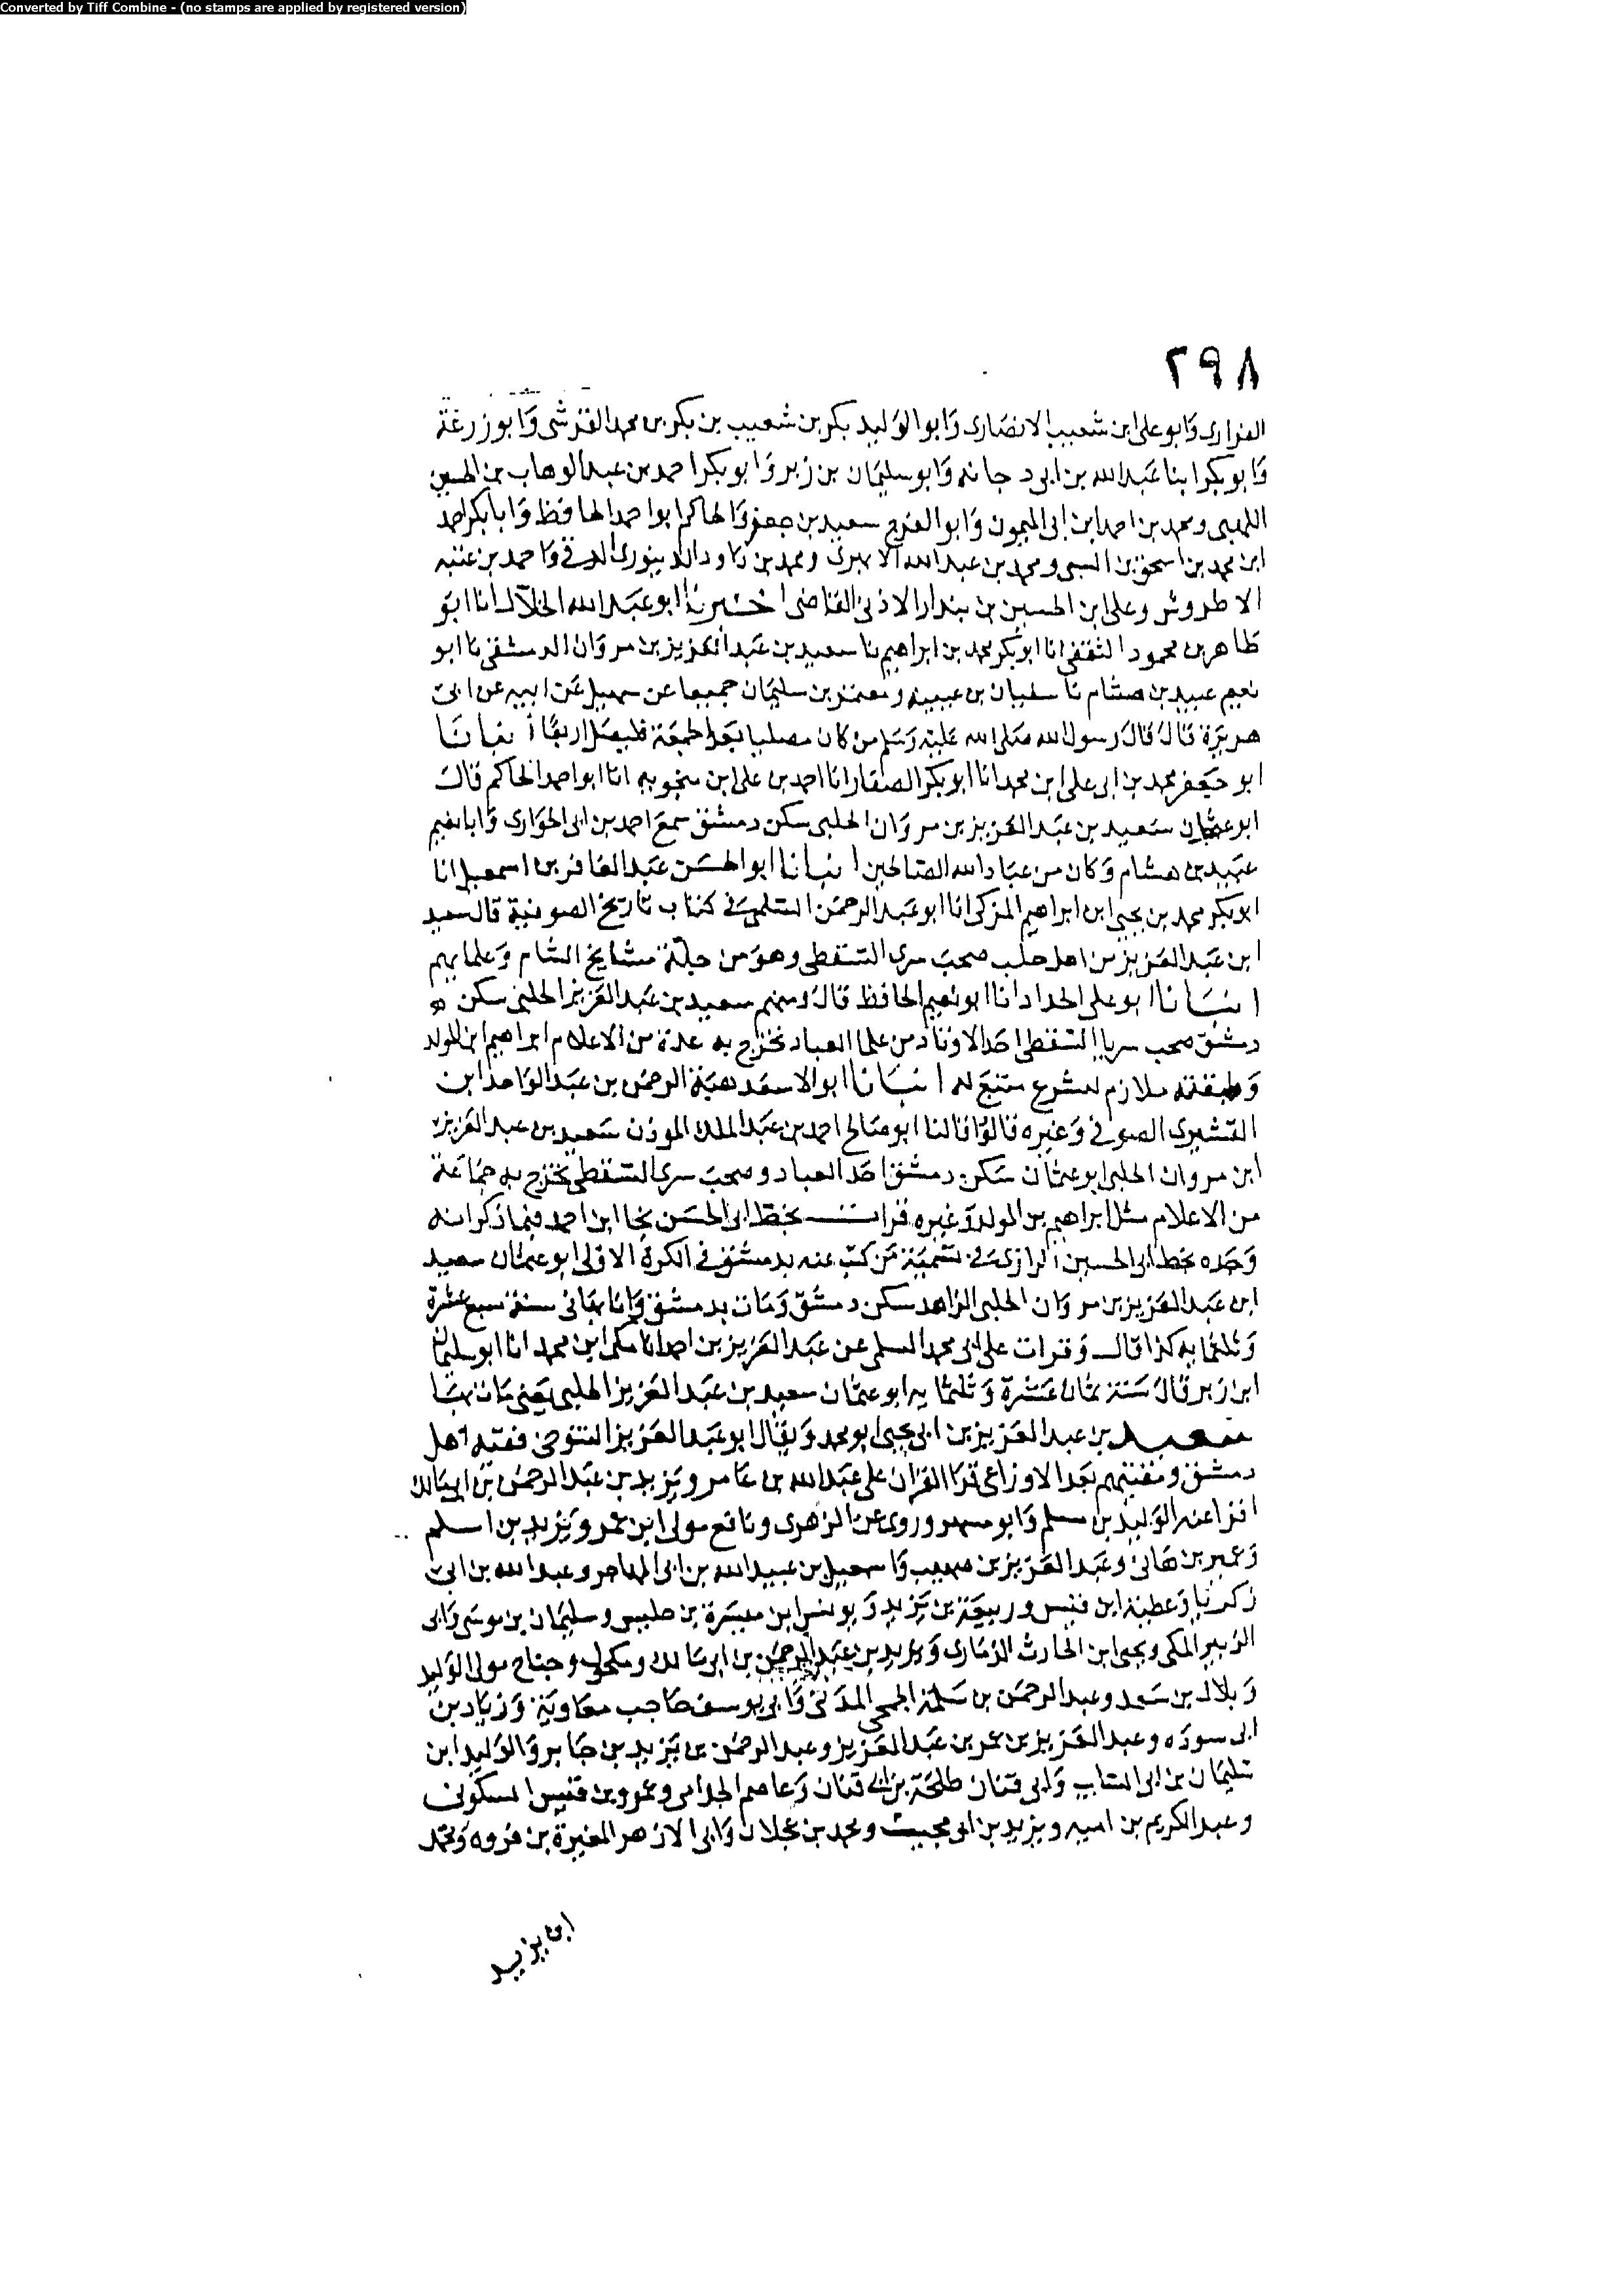 Converted by Tiff Combine - (no stamps are applied by registered version)
٢٩٨
الفزارى وابو على ابن شعيب الانصارى وابو الوليد بكر بن شعيب بن بكر بن محمد القرشى وابو زرعة
وابو بكر ابنا عبد الله بن ابى دجانه وابو سليمان بن زبر وابو بكر احمد بن عبد الوهاب بن الحسين
اللهبى ومحمد بن احمد ابن ابى الميمون وابو الفرج سعيد بن جعفر والحاكم ابو احمد الحافظ وابا بكر احمد
ابن محمد بن اسحق بن السنى ومحمد بن عبد الله الابهرى ومحمد بن داود الدينورى الدقى واحمد بن عتبه
الاطروش وعلى ابن الحسين بن بندار الاذنى القاضى اخبرنا ابو عبد الله الخلال انا ابو
طاهر بن محمود الثقفى انا ابو بكر محمد بن ابراهيم نا سعيد بن عبد العزيز بن مروان الدمشقى نا ابو
نعيم عبيد بن هشام نا سفيان بن عيينه ومعتمر بن سليمان جميعا عن سهيل عن ابيه عن ابى
هريرة قال قال رسول الله صلى الله عليه وسلم من كان مصليا بعد الجمعة فليصل اربعا أنبانا
ابو جعفر محمد بن ابى على ابن محمد انا ابو بكر الصفار انا احمد بن على ابن منجويه انا ابو احمد الحاكم قال
ابو عثمان سعيد بن عبد العزيز بن مروان الحلبى سكن دمشق سمع احمد بن ابى الحوارى وابا نعيم
عبيد بن هشام وكان من عباد الله الصالحين انبانا ابو الحسن عبد الغافر بن اسمعيل انا
ابو بكر محمد بن يحيى ابن ابراهيم المزكى انا ابو عبد الرحمن السلمى فى كتاب تاريخ الصوفية قال سعيد
ابن عبد العزيز من اهل حلب صحب سرى السقطى وهو من جلة مشايخ الشام وعلمايهم
انبانا ابو على الحداد انا ابو نعيم الحافظ قال ومنهم سعيد بن عبد العزيز الحلبى سكن
دمشق صحب سريا السقطى احد الاوتاد من علما العباد تخرج به عدة من الاعلام ابراهيم ابن المولد
وطبقته ملازم للشرع متبع له انبانا ابو الاسعد هبة الرحمن بن عبد الواحد ابن
القشيرى الصوفى وغيره قالوا قال لنا ابو صالح احمد بن عبد الملك الموذن سعيد بن عبد العزيز
ابن مروان الحلبى ابو عثمان سكن دمشق احد العباد وصحب سرى السقطى تخرج به جماعة
من الاعلام مثل ابراهيم بن المولد وغيره قرات بخط ابى الحسن نجا ابن احمد فيما ذكر انه
وجده بخط ابى الحسين الرازى فى تسمية من كتب عنه بدمشق فى الكرة الاولى ابو عثمان سعيد
ابن عبد العزيز بن مروان الحلبى الزاهد سكن دمشق ومات بدمشق وانا بها فى سنة سبع عشرة
وثلثمايه كذا قال وقرات على ابى محمد السلمى عن عبد العزيز بن احمد انا مكى ابن محمد انا ابو سليمان
ابن زبر قال سنة ثمان عشرة وثلثمايه ابو عثمان سعيد بن عبد العزيز الحلبى يعنى مات بها
سعيد بن عبد العزيز بن ابى يحيى ابو محمد ويقال ابو عبد العزيز التنوخى فقيه اهل
دمشق ومفتيهم بعد الاوزاعى قرا القران على عبد الله بن عامر ويزيد بن عبد الرحمن بن ابى مالك
اقرا عنه الوليد بن مسلم وابو مسهر وروى عن الزهرى ونافع مولى ابن عمر ويزيد بن اسلم
وعمير بن هانى وعبد العزيز بن صهيب واسمعيل بن عبيد الله بن ابى المهاجر وعبد الله بن ابى
زكريا وعطية ابن قيس وربيعة بن يزيد ويونس ابن ميسرة بن حلبس وسليمان بن موسى وابى
الزبير المكى ويحيى ابن الحارث الذمارى ويزيد بن عبد الرحمن بن ابى مالك ومكحول وجناح مولى الوليد
وبلال بن سعد وعبد الرحمن بن سلمة الجمحى المدنى وابى يوسف حاجب معاوية وزياد بن
ابى سوده وعبد العزيز بن عمر بن عبد العزيز وعبد الرحمن بن يزيد بن جابر والوليد ابن
سليمان بن ابى السايب وابى قنان طلحة بن ابى قنان وعاصم الجذامى وعمرو بن قيس السكونى
وعبد الكريم بن اميه ويزيد بن ابى محمد بن عجلان وابى الازهر المغيرة بن فروه ومحمد
ابن يزيد